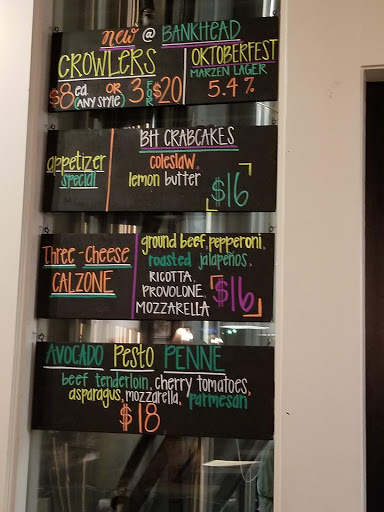 new @ BANKHEAD
CROWLERS
$8 ea. OR 3 FOR $20
(ANY STYLE)
OKTOBERFEST
MARZEN LAGER
5.4%
appetizer
special
BH CRABCAKES
coleslaw,
lemon butter
$16
Three-Cheese
CALZONE
ground beef, pepperoni,
roasted jalapeños,
RICOTTA,
PROVOLONE,
MOZZARELLA
$16
AVOCADO Pesto PENNE
beef tenderloin, cherry tomatoes,
asparagus, mozzarella, parmesan
$18